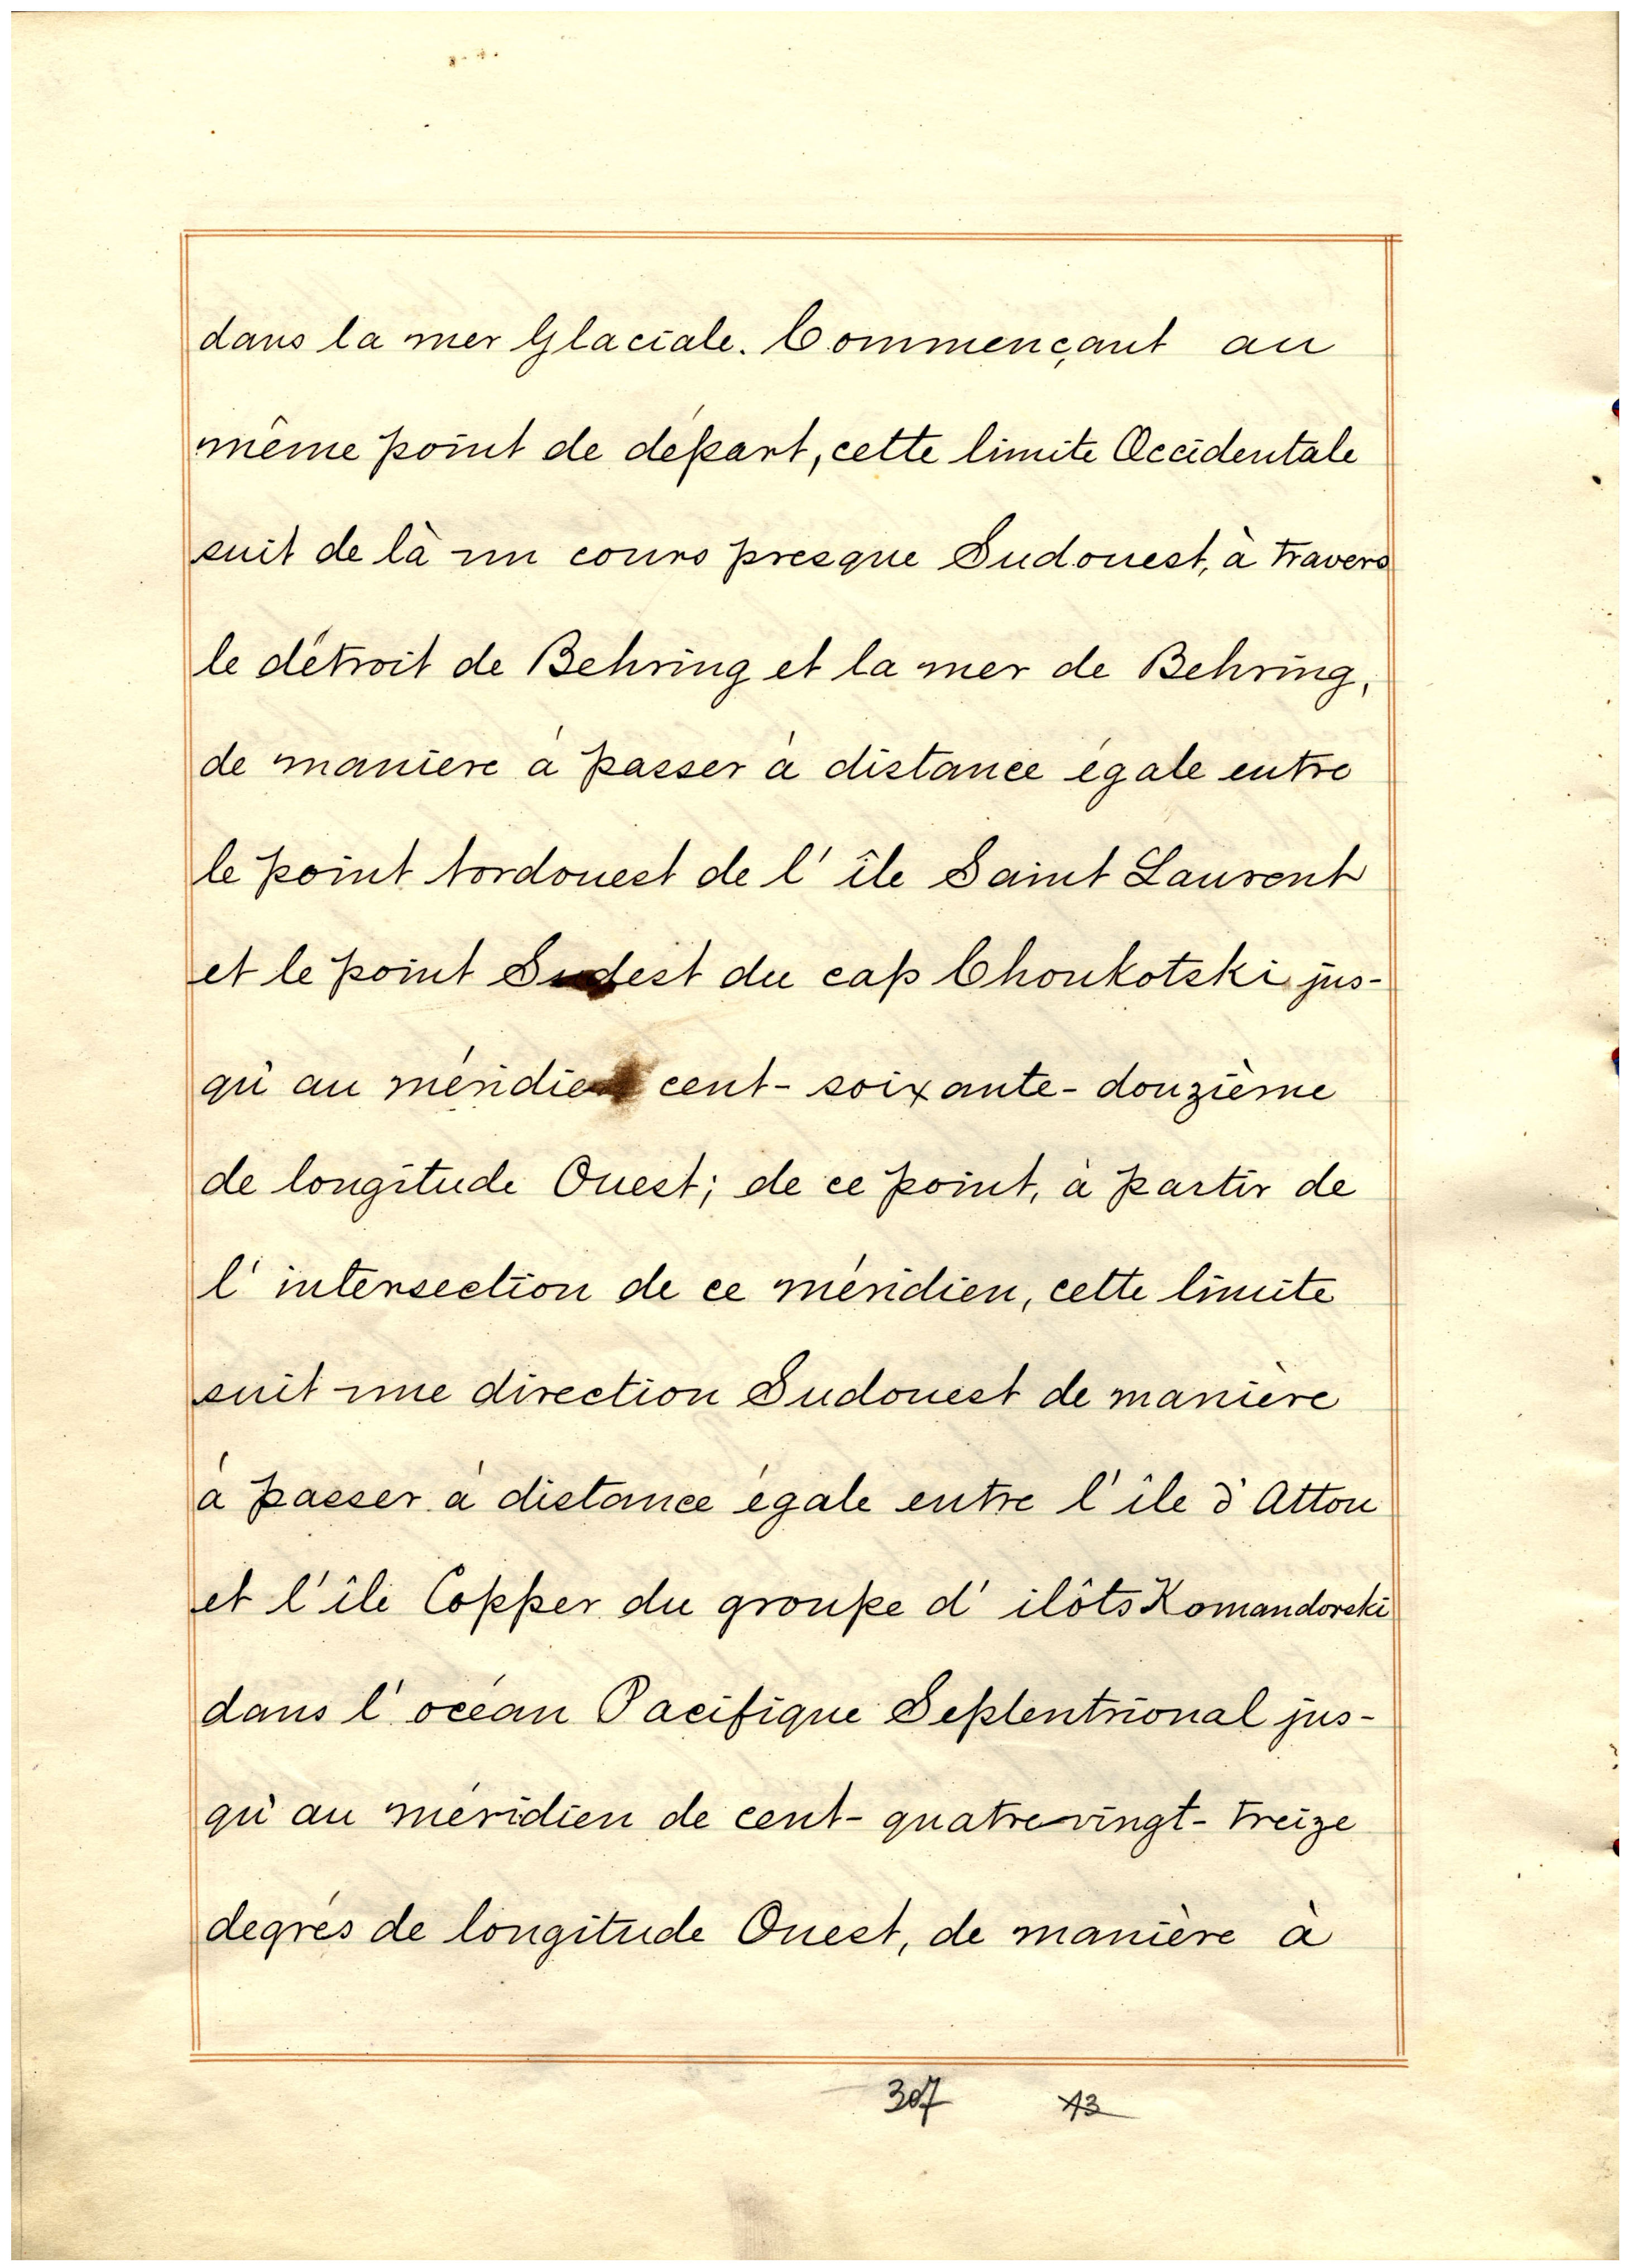 dans la mer Glaciale. Commençant au
même point de départ, cette limite Occidentale
suit de là un cours presque Sudouest, à travers
le détroit de Behring et la mer de Behring,
de manière à passer à distance égale entre
le point Nordouest de l' île Saint Laurent
et le point Sudest du cap Choukotski jus-
qu'au méridien cent-soixante-douzième
de longitude Ouest; de ce point, à partir de
l' intersection de ce méridien, cette limite
suit une direction Sudouest de manière
à passer à distance égale entre l'île d'Attou
et l'île Copper du groupe d' ilôts Komandorski
dans l' océan Pacifique Septentrional jus-
qu'au méridien de cent-quatrevingt-treize
degrés de longitude Ouest, de manière à
307 43